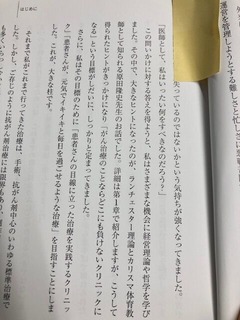 はじめに
運営を管理しようとする難しさと忙しさに
失っているのではないかという気持ちが強くなってきました。
「医師として、私はいったい何をすべきなのだろう？」
この問いかけに対する答えを得ようと、私はさまざまな機会に経営理論や哲学を学び
ました。その中で、大きなヒントになったのが、ランチェスター理論とカリスマ体育教
師として知られる原田隆史先生のお話でした。詳細は第1章で紹介しますが、こうして
得られたヒントがきっかけになり「がん治療のことならどこにも負けないクリニックに
なる」という目標がしだいに、しっかりと定まってきました。
さらに、私はその目標のために「患者さんの目線に立った治療を実践するクリニッ
ク」「患者さんが、元気でイキイキと毎日を過ごせるような治療」を目指すことにしま
した。これが、大きな柱です。
それまで私がこれまで行ってきた治療は、手術、抗がん剤中心のいわゆる標準治療で
した。しかし、ご存じのように抗がん剤治療には限界もあり、